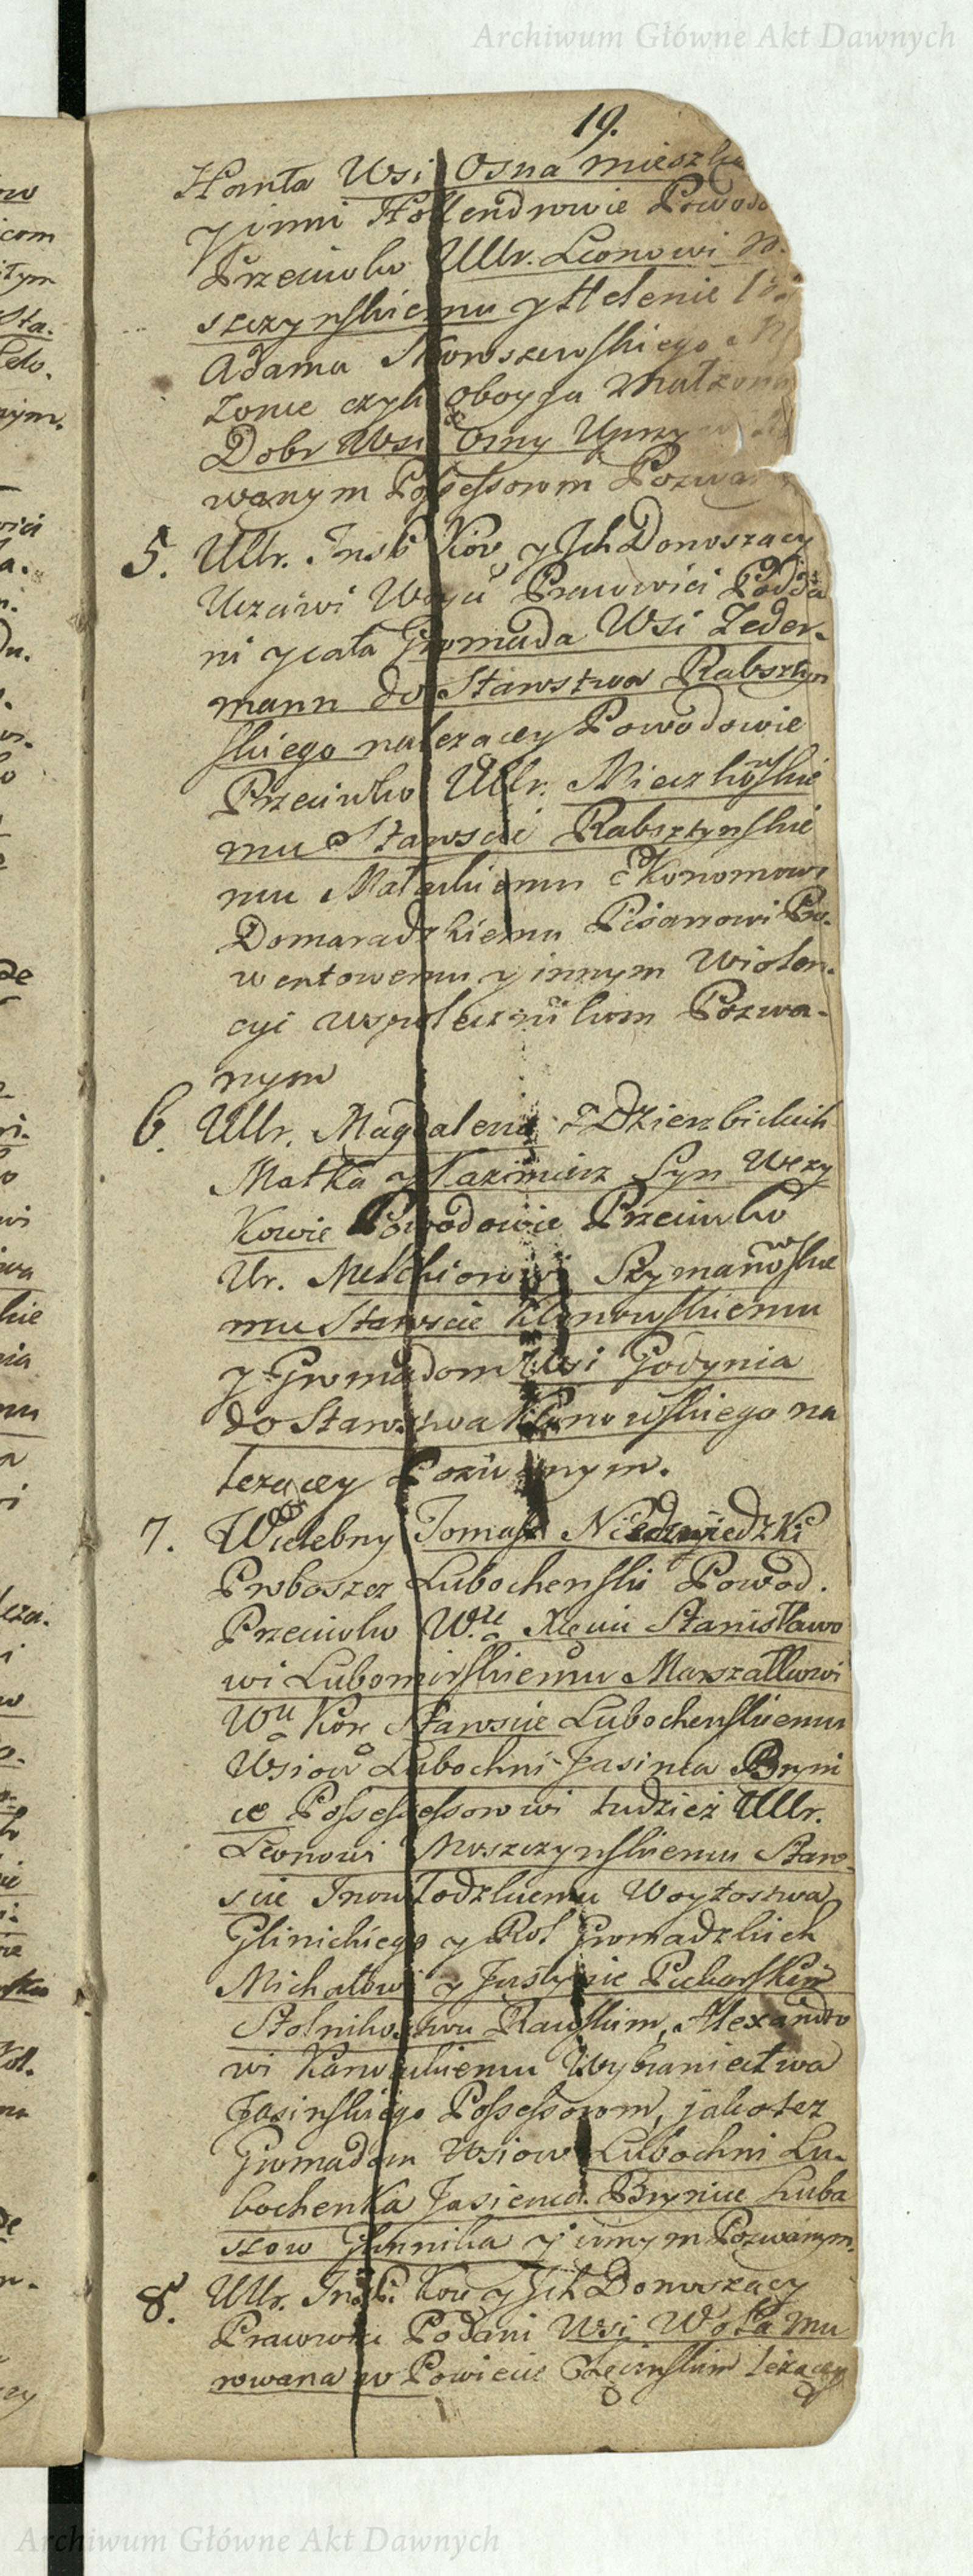 Archiwum Główne Akt Dawnych
19.
Hanta Wsi Osna mieszka
y inni Hollendrowie Powodo
Przeciwko Ullr. Leonowi
szczynskiemu y Helenie
Adama Skorszewskiego
Zonie czyli oboyga Małżon
Dobr Wsi Osny Uprzy
wanym Possessorom Pozwa
5. Ullr. Inst. Kor. y Jch Donoszacy
Uczciwi Woyu Prawowici Podda
ni y cała Gromada Wsi Zeder-
mann do Starostwa Rabsztyn
skiego należącey Powodowie
Przeciwko Ullr. Mieczkowskie
mu Staroscie Rabsztynskie
mu Małachiemu Ekonomowi
Domaradzkiemu Pisarzowi Pro-
wentowemu y innym Wiolen-
cyi wspolecznikom Pozwa-
nym
6. Ullr. Magdalena z Dzierzbickich
Matka y Kazimierz Syn Wezy
kowie Powodowie Przeciwko
Ur. Melchiorowi Szymanowskie
mu Staroscie Klonowskiemu
y Gromadom Wsi Godynia
do Starostwa Klonowskiego na
leżącey Pozwanym.
7. Wielebny Tomasz Niedzwiedzki
Proboszcz Lubochenski Powod.
Przeciwko W. Xięciu Stanisławo
wi Lubomirskiemu Marszałkowi
Wu Kor Staroscie Lubochenskiemu
Wsiow Lubochni Jasinia Bryni
ce Possessessorowi tudzież Ullr.
Leonowi Moszczynskiemu Staro-
scie Inowłodzkiemu Woytostwa
Glinickiego y Rol Gromadzkich
Michałowi y Justynie Puharskim
Stolnikostwu Rawskim, Alexandro
wi Karwickiemu Wybraniectwa
Jasinskiego Possessorom, jako też
Gromadom Wsiow Lubochni Lu-
bochenka Jasienia Brynice Luba
szow Glinnika y innym Pozwanym.
8. Ullr. Inst. Kor y Jch Donoszący
Prawowici Podani Wsi Wola Mu
rowana w Powiecie Chęcinskim leżącey
Archiwum Główne Akt Dawnych